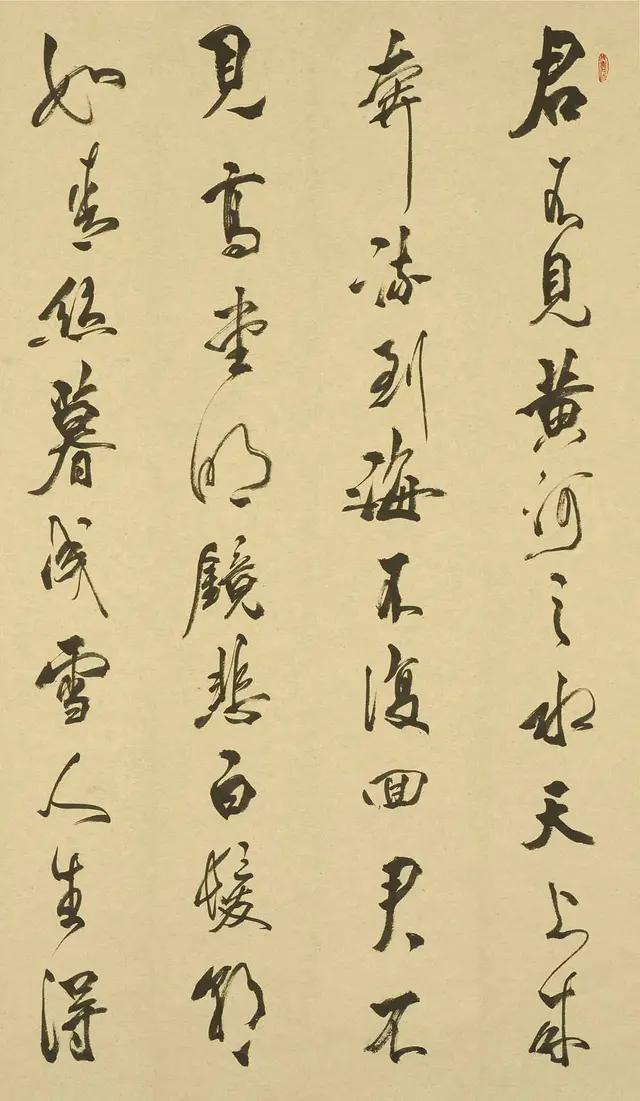 君不見黄河之水天上来
奔流到海不復回君不
見高堂明鏡悲白髮朝
如青絲暮成雪人生得